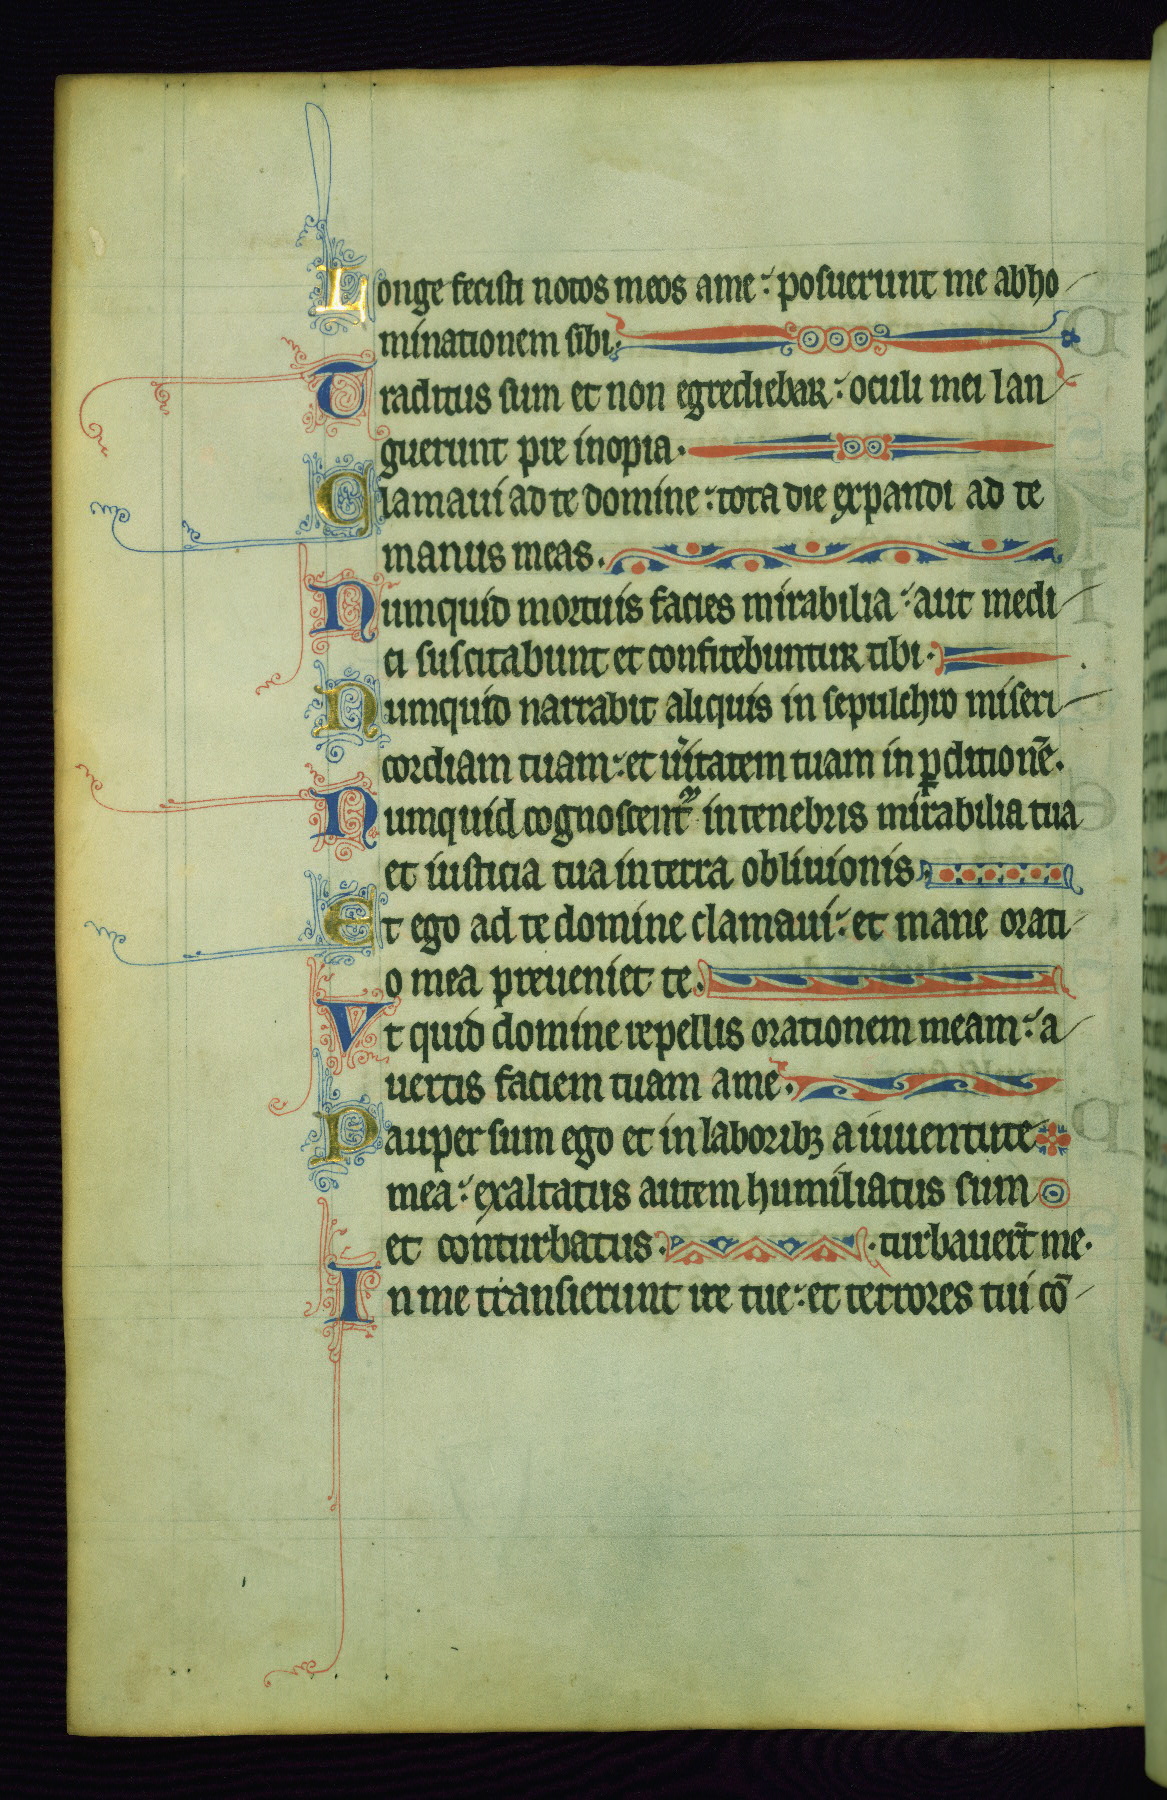 Longe fecisti notos meos a me: posuerunt me abho
minationem sibi.
Traditus sum et non egrediebar: oculi mei lan
guerunt pre inopia.
Clamaui ad te domine: tota die expandi ad te
manus meas.
Numquid mortuis facies mirabilia: aut medi
ci suscitabunt et confitebuntur tibi.
Numquid narrabit aliquis in sepulchro miseri
cordiam tuam: et ũitatem tuam in ꝑditionẽ.
Numquid cognoscent᷑ in tenebris mirabilia tua
et iusticia tua in terra obliuionis.
Et ego ad te domine clamaui: et mane orati
o mea preueniet te.
Vt quid domine repellis orationem meam: a
uertis faciem tuam a me.
Pauper sum ego et in laboribꝫ a iuuentute
mea: exaltatus autem humiliatus sum
et conturbatus. turbauer̃t me.
In me transierunt ire tue: et terrores tui cõ